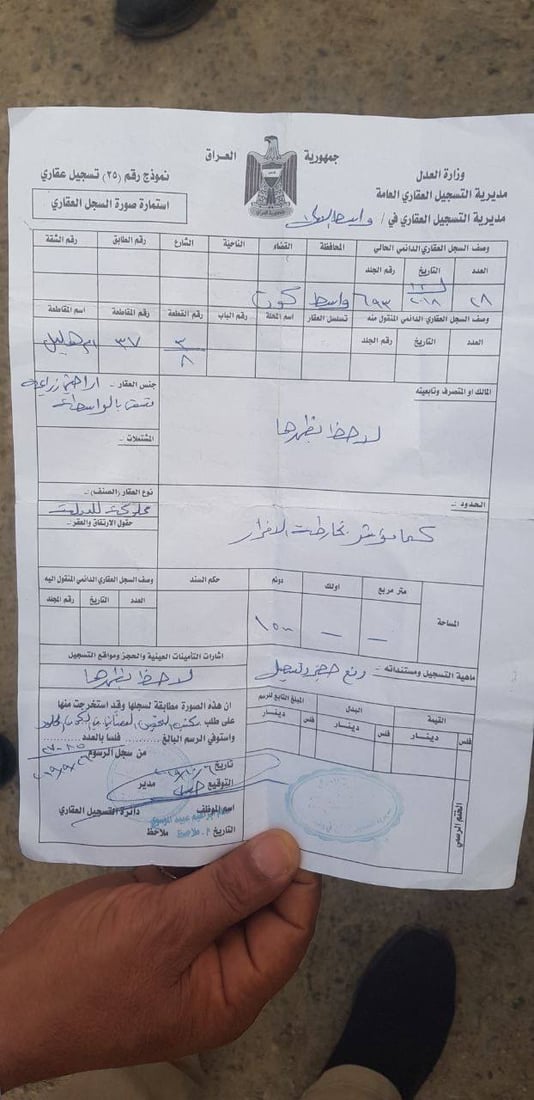 جمهورية العراق
وزارة العدل
مديرية التسجيل العقاري العامة
مديرية التسجيل العقاري في / واسط الاولى
نموذج رقم (٢٥) تسجيل عقاري
استمارة صورة السجل العقاري
وصف السجل العقاري الدائمي الحالي المحافظة القضاء الناحية الشارع رقم الطابق رقم الشقة
العدد التاريخ رقم الجلد
٢٨ ٢٠١٨ ٦٩٣ واسط كوت
وصف السجل العقاري الدائمي المنقول منه تسلسل العقار اسم المحلة رقم الباب رقم القطعة رقم المقاطعة اسم المقاطعة
العدد التاريخ رقم الجلد
٣/٨ ٣٧ ام هليل
المالك او المتصرف وتابعيته
لاحظ بظهرها
جنس العقار :- اراضي زراعية
تسقى بالواسطة
المشتملات :-
نوع العقار (الصنف) :-
مملوكة للدولة
الحدود :-
كما مؤشر بخارطة الافراز
حقوق الارتفاق والعقر :-
المساحة متر مربع اولك دونم حكم السند وصف السجل العقاري الدائمي المنقول اليه
العدد التاريخ رقم المجلد
— — ١٥٠٠
ماهية التسجيل ومستنداته :- رفع حجز وتسجيل
اشارات التأمينات العينية والحجز ومواقع التسجيل
لاحظ بظهرها
القيمة البدل المبلغ التابع للرسم
فلس دينـار فلس دينـار فلس دينـار
الختم الرسمي
ان هذه الصورة مطابقة لسجلها وقد استخرجت منها
على طلب مكتب التحقيق القضائي
واستوفي الرسم البالغ .......... فلسا بالعدد
من سجل الرسوم
تاريخ
التوقيع مدير
اسم الموظف دائرة التسجيل العقاري
التاريخ ملاحظ